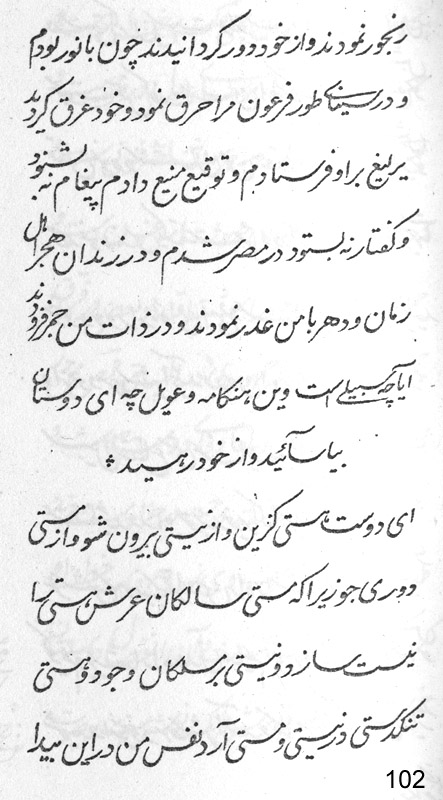 رنجور نمودند و از خود دور گردانیدند چون با نور بودم
و در سینای طور فرعون مرا حرق نمود و خود غرق گردید
یرلیغ بر او فرستادم و توقیع منیع دادم پیغام نه بشنود
و گفتار نه بستود در مصر شدم و در زندان هجر اهل
زمان و دهر با من غدر نمودند و در ذات من حجر فرودند
ایا چه سبیلی است وین هنگامه و عویل چه ای دوستان
بیاسائید و از خود رهید *
ای دوست هستی گزین و از نیستی بیرون شو و از مستی
دوری جو زیرا که مستی سالکان عرش هستی را
نیست سازد و نیستی بر سلکان وجود و هستی
تنگدستی در نیستی و مستی آرد نفس من در این بیدا
102